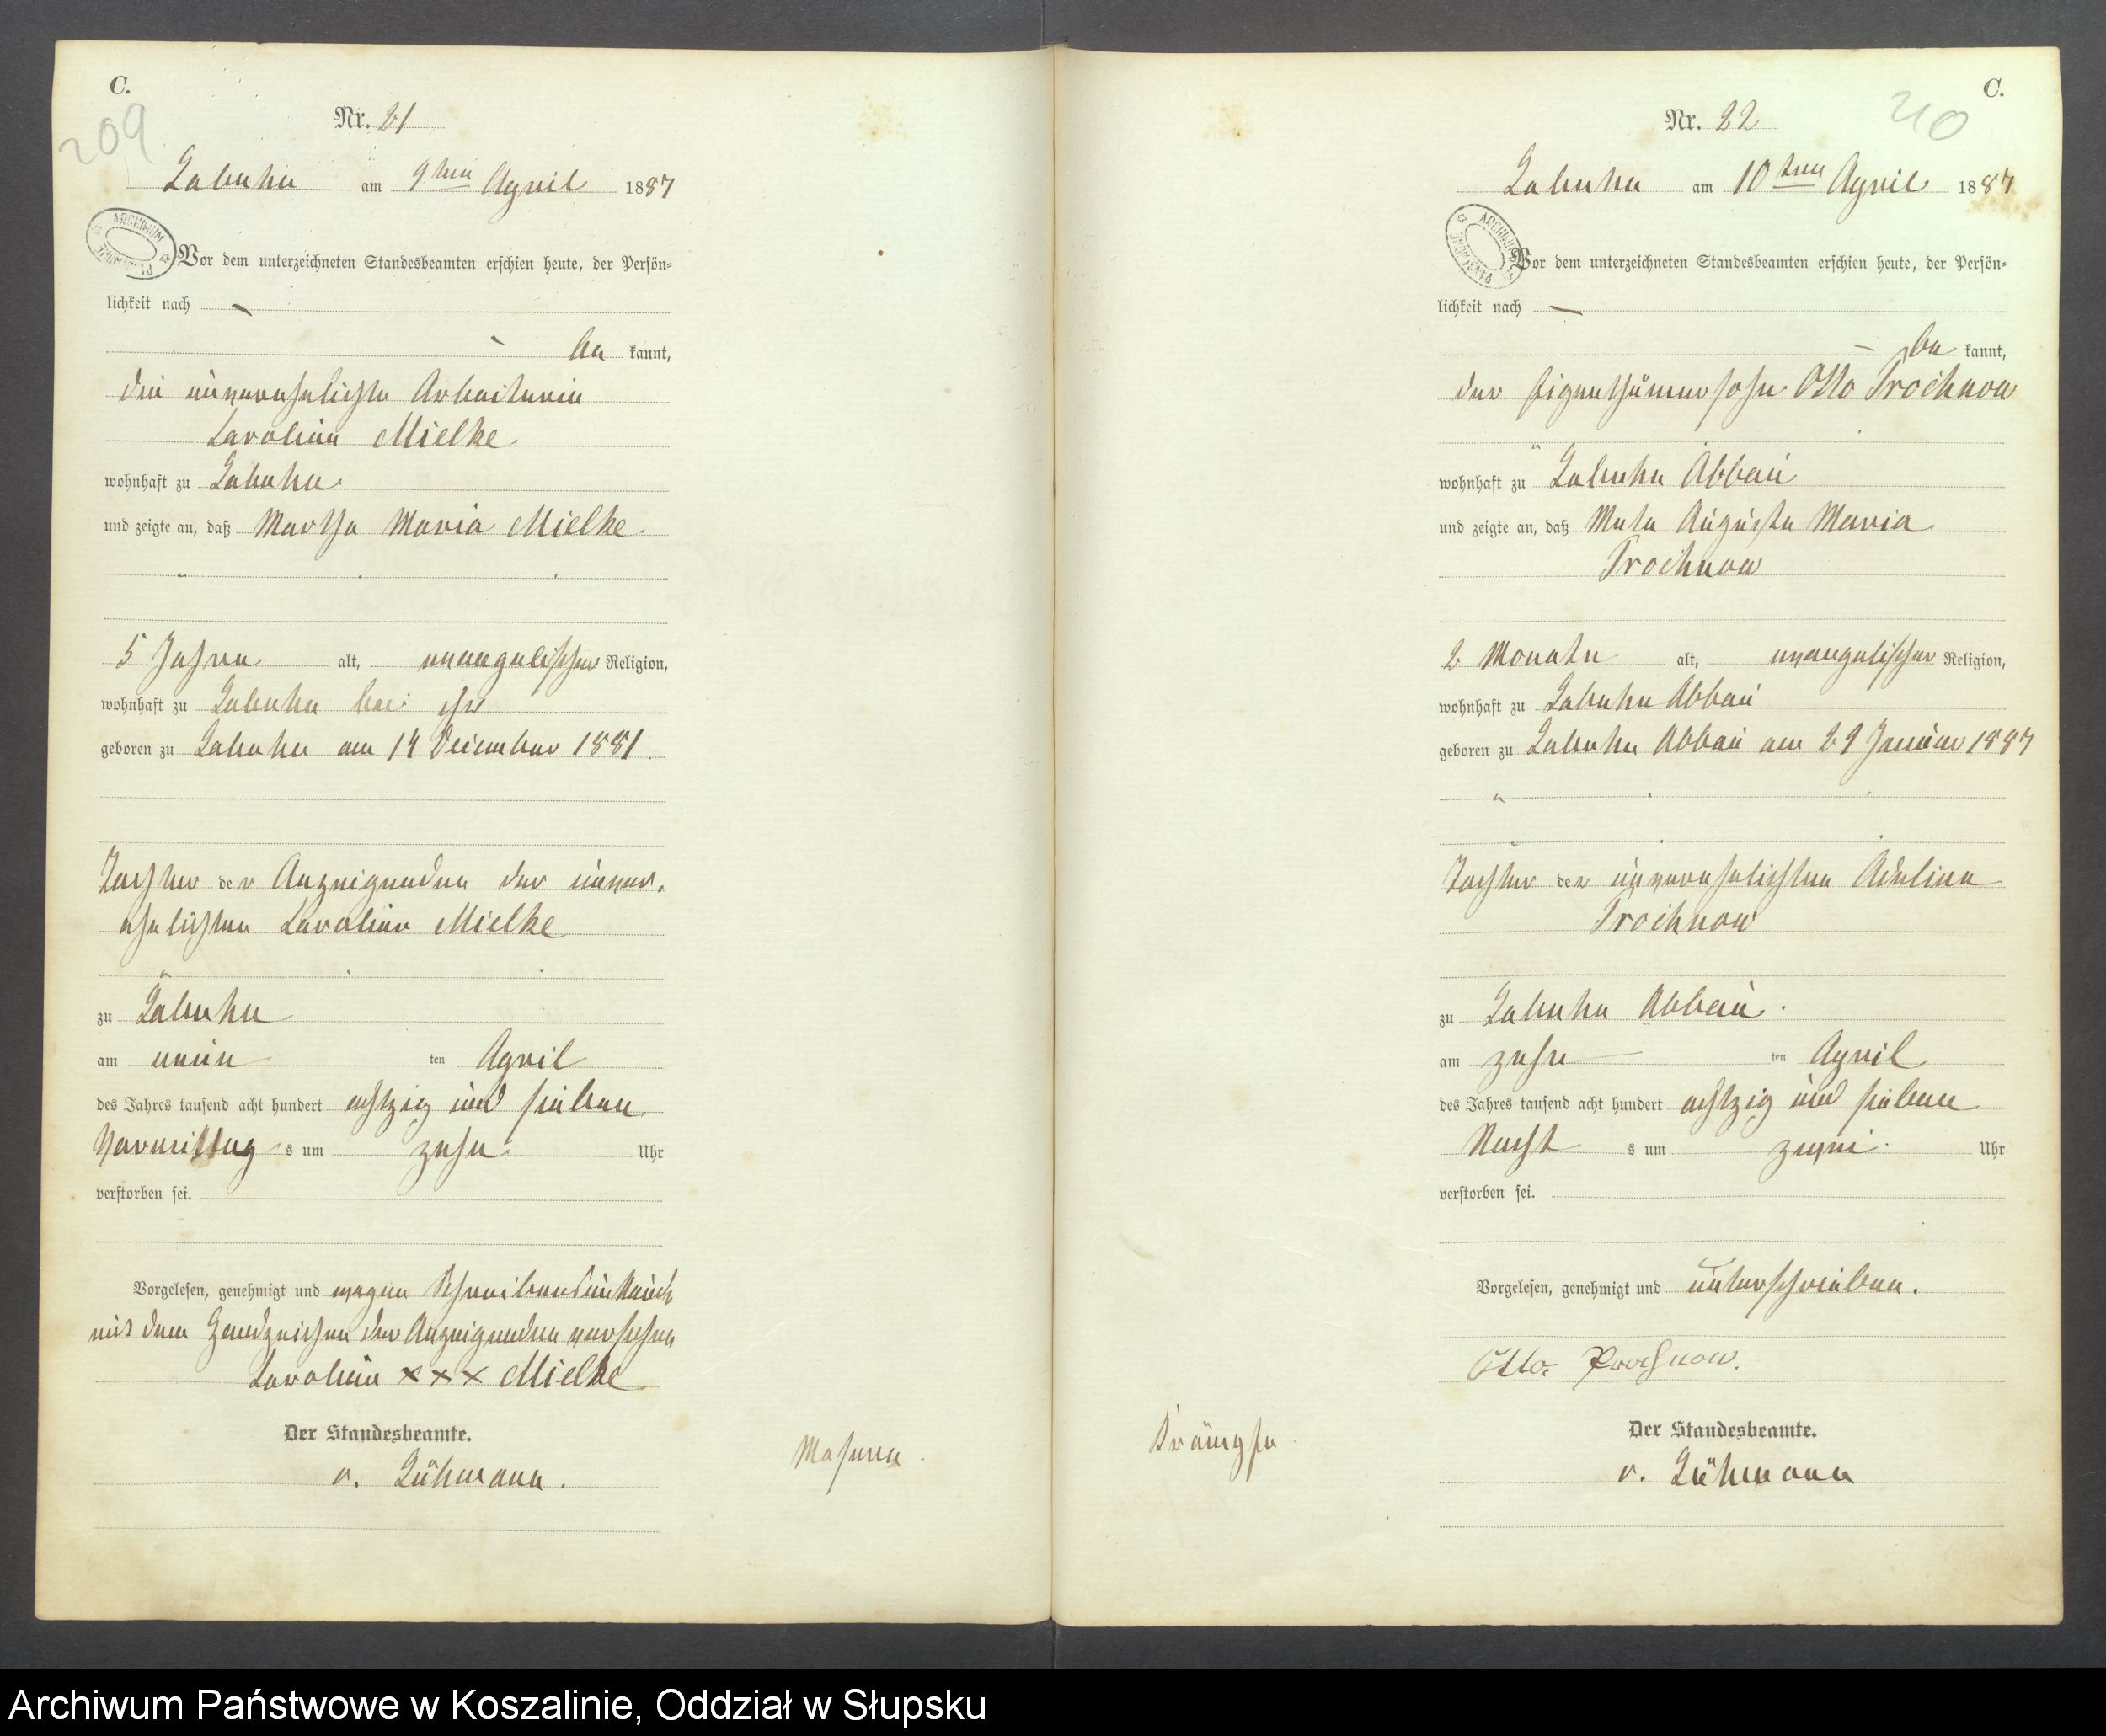 C.
209
Nr. 21
Labuhn am 9ten April 1887
ARCHIWUM
Vor dem unterzeichneten Standesbeamten erschien heute, der Persön=
lichkeit nach
be kannt,
die unverehelichte Arbeiterin
Caroline Mielke
wohnhaft zu Labuhn
und zeigte an, daß Martha Maria Mielke
5 Jahre alt, evangelischer Religion,
wohnhaft zu Labuhn bei ihr
geboren zu Labuhn am 14 Dezember 1881.
Tochter der Anzeigenden der unver-
ehelichten Caroline Mielke
zu Labuhn
am neun ten April
des Jahres tausend acht hundert achtzig und sieben
Vormittag s um zehn Uhr
verstorben sei.
Vorgelesen, genehmigt und wegen Schreibensunkunde
mit dem Handzeichen der Anzeigenden versehen
Caroline x x x Mielke
Der Standesbeamte.
v. Lühmann.
Masern.
C.
210
Nr. 22
Labuhn am 10ten April 1887
ARCHIWUM
Vor dem unterzeichneten Standesbeamten erschien heute, der Persön=
lichkeit nach
be kannt,
der Eigenthümersohn Otto Prochnow
wohnhaft zu Labuhn Abbau
und zeigte an, daß Meta Auguste Maria
Prochnow
2 Monate alt, evangelischer Religion,
wohnhaft zu Labuhn Abbau
geboren zu Labuhn Abbau am 29 Januar 1887
Tochter der unverehelichten Adeline
Prochnow
zu Labuhn Abbau.
am zehn ten April
des Jahres tausend acht hundert achtzig und sieben
Nacht s um zwei Uhr
verstorben sei.
Vorgelesen, genehmigt und unterschrieben.
Otto Prochnow.
Krämpfe
Der Standesbeamte.
v. Lühmann
Archiwum Państwowe w Koszalinie, Oddział w Słupsku